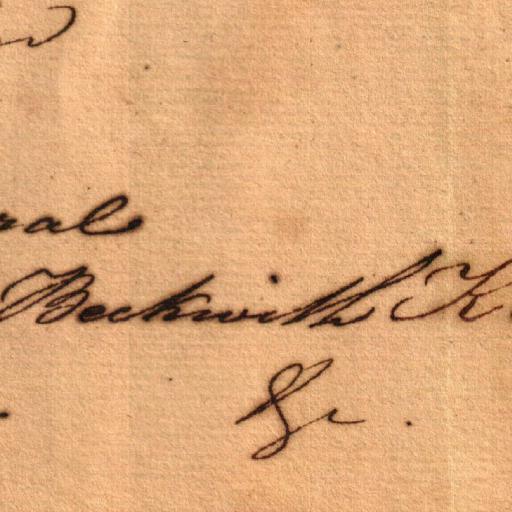 ral
Beckwith K
&c.